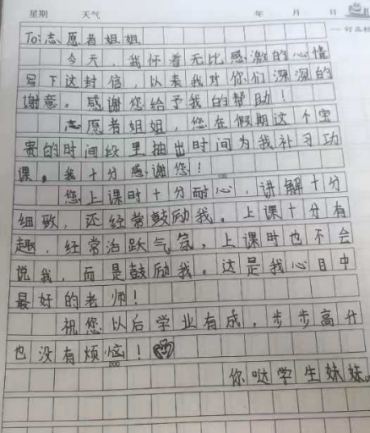 星期 天气 年 月 日
To:志愿者姐姐
今天,我怀着无比感激的心情
写下这封信,以表我对你们深深的
谢意。感谢您给予我的帮助!
志愿者姐姐,您在假期这个宝
贵的时间段里抽出时间为我补习功
课。我十分感谢您!
您上课时十分耐心,讲解十分
细致,还经常鼓励我。上课十分有
趣,经常活跃气氛。上课时也不会
说我,而是鼓励我。这是我心目中
最好的老师!
祝您以后学业有成,步步高升
也没有烦恼!
你哒学生妹妹。